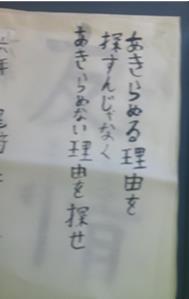 あきらめる理由を
探すんじゃなく
あきらめない理由を探せ
六年